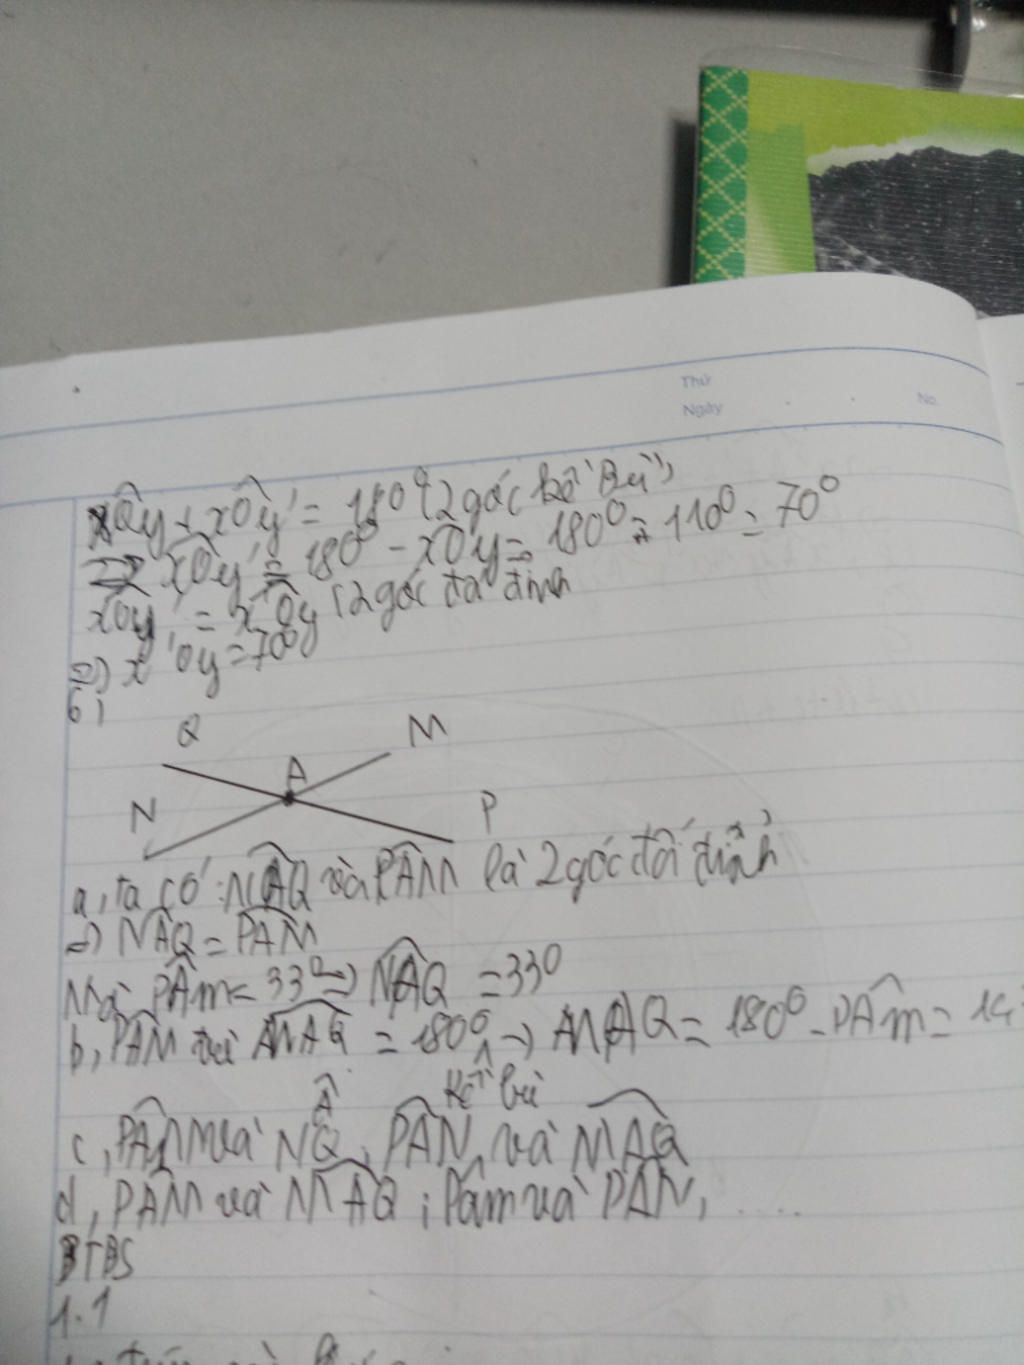 Thứ
Ngày
No.
xOy + xOy' = 180° (2 góc kề bù)
=> xOy' = 180° - xOy = 180° - 110° = 70°
xOy' = x'Oy (2 góc đđ đỉnh
=> x'Oy = 70°
6)
Q
M
A
N
P
a, ta có: NAQ và PAM là 2 góc đối đỉnh
=> NAQ = PAM
Mà PAm = 33° => NAQ = 33°
b, PAM và MAQ = 180° => MAQ = 180° - PAm = 14
kề bù
c, PAM và NAQ, PAN và MAQ
d, PAM và MAQ; PAm và PAN, .....
BTBS
1.1